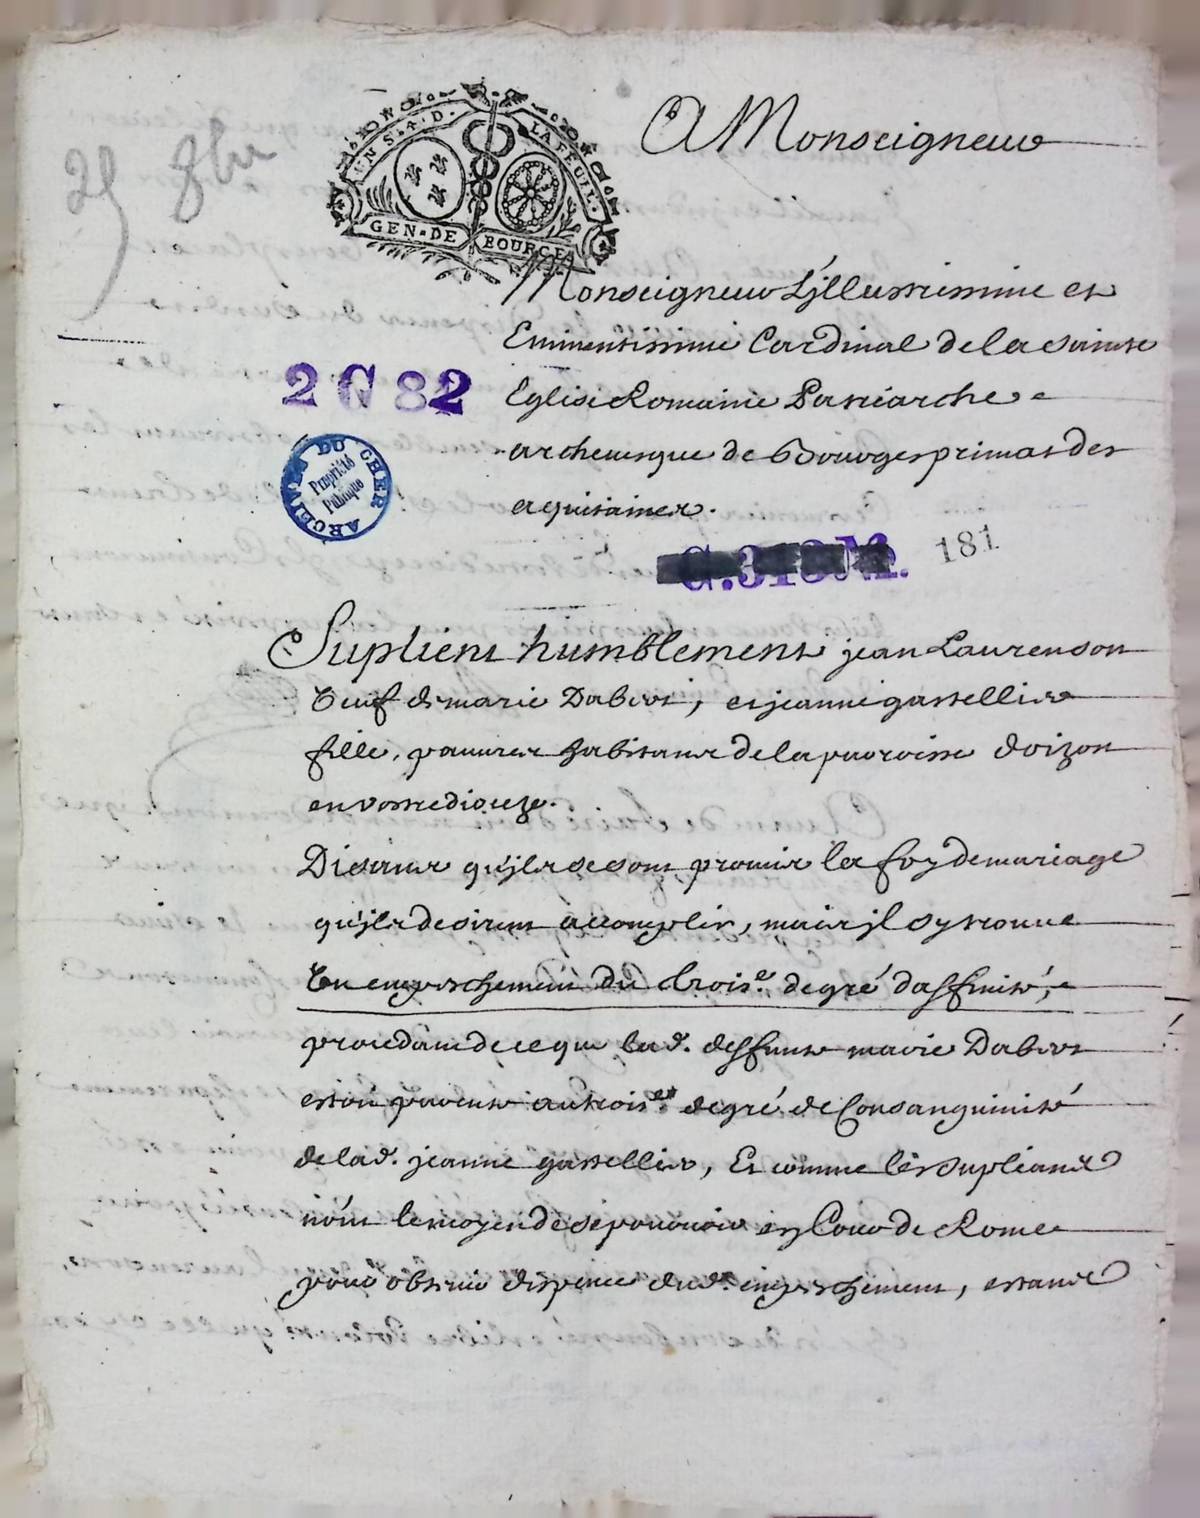 A Monseigneur
25 8bre
UN S. 4. D. LA FEUIL.
GEN. DE BOURGE
Monseigneur L'jllustrissime et
Eminentissime Cardinal de la Sainte
Eglise Romaine Patriarche
archevesque de Bourges primat des
aquitaines.
2 G 82
ARCHIVES DU CHER
Propriété
Publique
181
Suplient humblement jean Laurenson
veuf de marie Dabert, et jeanne gastellier
fille, pauvres habitans de la paroisse doizon
en vostre dioceze.
Disants qu'jls se sont promis la foy de mariage
qu'jls desirent accomplir, mais jl sy trouve
un empeschement du trois.e degré daffinité,
procedant de ce que lad. deffunte marie Dabert
estoit parente au trois.e degré de Consanguinité
de lad. jeanne gastellier, Et comme les supliants
n'ont le moyen de se pourvoir en Cour de Rome
pour obtenir dispence dud. empeschement, estants